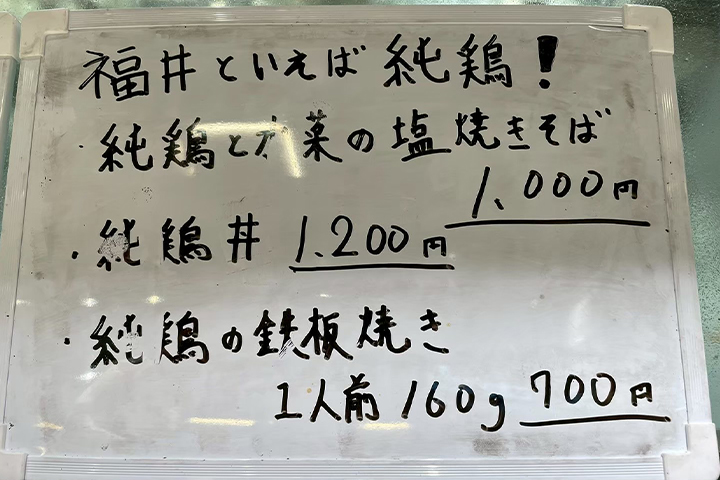 福井といえば純鶏!
・純鶏と水菜の塩焼きそば
1,000円
・純鶏丼 1,200円
・純鶏の鉄板焼き
1人前 160g 700円